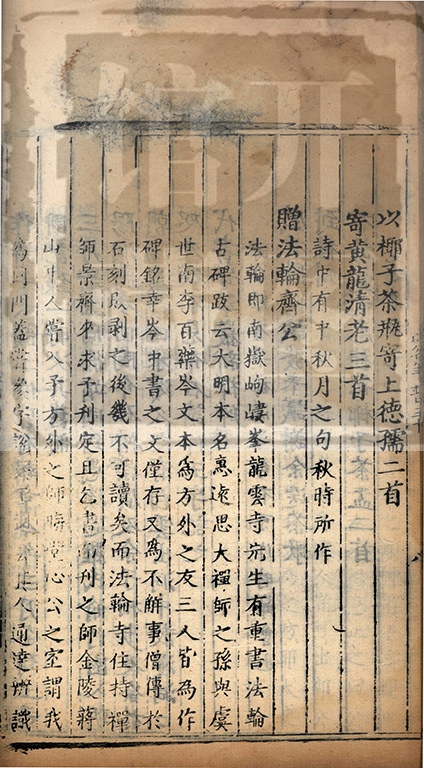 以椰子茶瓶寄上德孺二首
寄黃龍清老三首
詩中有中秋月之句秋時所作
贈法輪齊公
法輪即南嶽岣嶁峯龍雲寺先生有重書法輪
古碑跋云大明本名惠遠思大禪師之孫與虞
世南李百藥岑文本為方外之友三人皆為作
碑銘幸岑中書之文僅存又為不解事僧傳於
石刻㓟剥之後幾不可讀矣而法輪寺住持禪
師景齊來求予刊定且乞書而刊之師金陵蔣
山中人嘗入予方外之師晦堂心公之室謂我
為同門蓋嘗參字說
人通達辨識